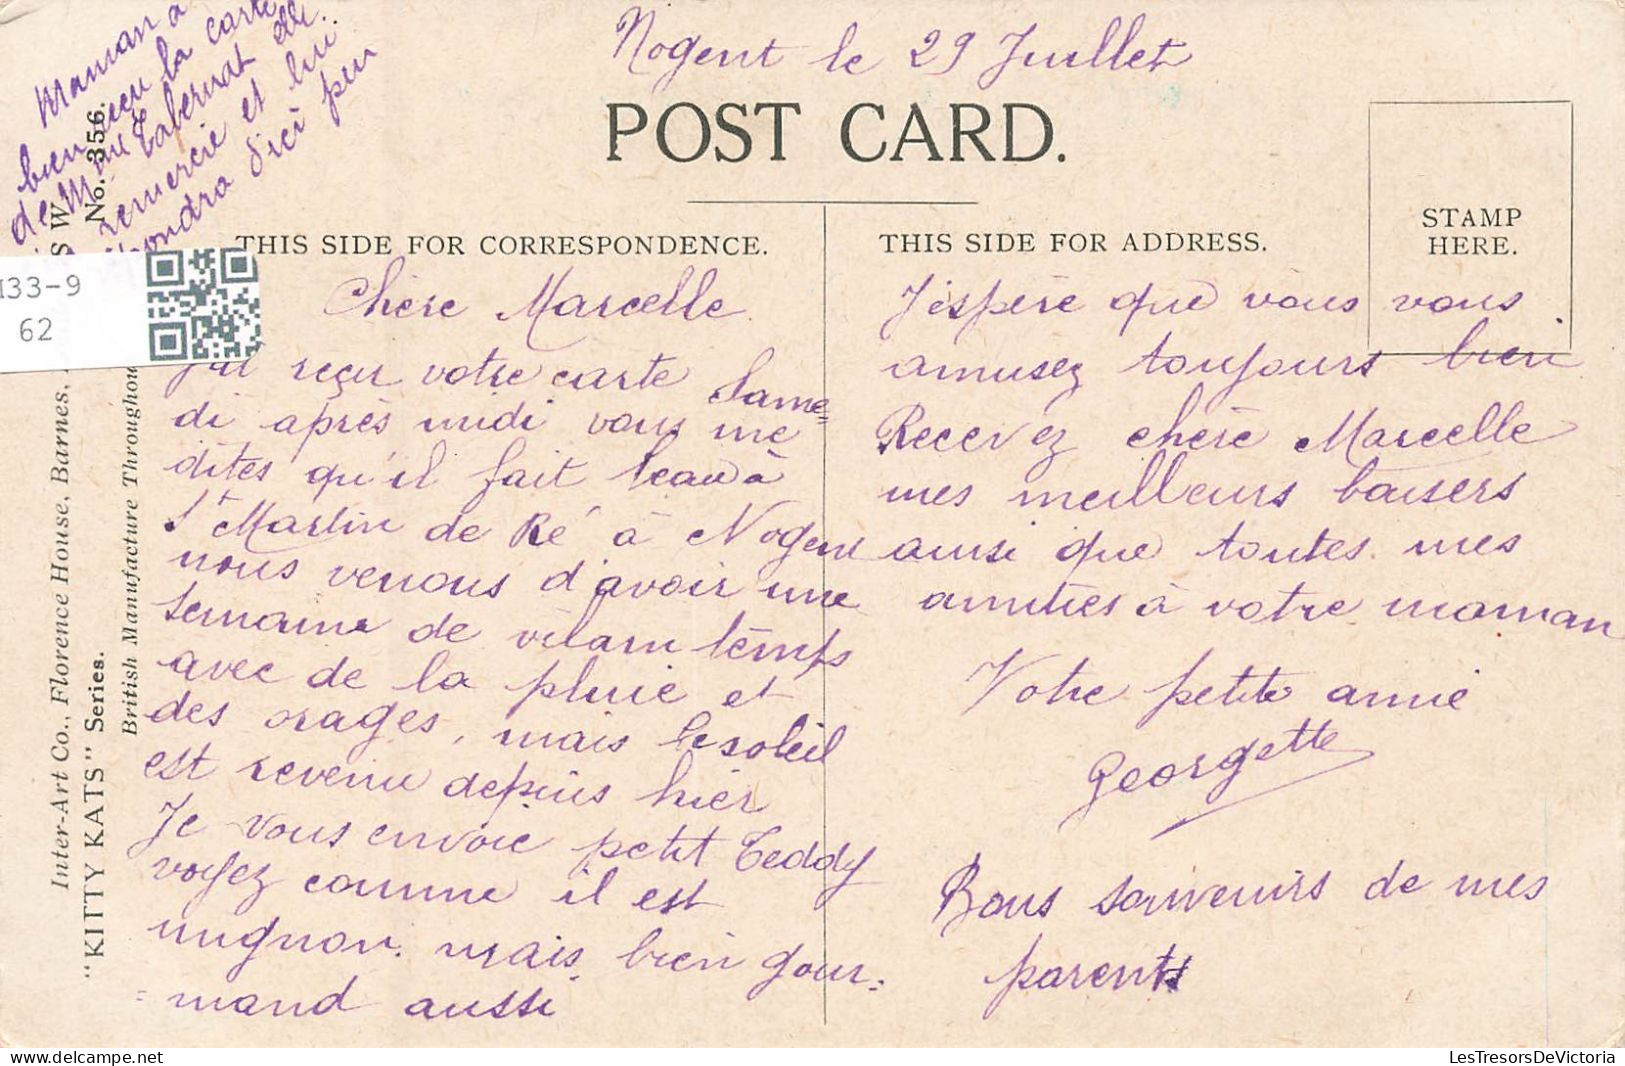 Maman a
bien reçu la carte
de Mme Tabernat elle
remercie et lui
d'ici peu
Nogent le 29 Juillet
POST CARD.
STAMP
HERE.
THIS SIDE FOR CORRESPONDENCE.
THIS SIDE FOR ADDRESS.
33-9
62
No. 356.
Inter-Art Co., Florence House, Barnes,
"KITTY KATS" Series.
British Manufacture
Chère Marcelle
J'ai reçu votre carte Same=
di après midi vous me
dites qu'il fait beau à
St Martin de Ré à Nogent
nous venons d'avoir une
semaine de vilain temps
avec de la pluie et
des orages, mais le soleil
est revenu depuis hier
Je vous envoie petit Teddy
voyez comme il est
mignon. mais bien gour=
=mand aussi
J'espère que vous vous
amusez toujours bien
Recevez chère Marcelle
mes meilleurs baisers
ainsi que toutes mes
amitiés à votre maman
Votre petite amie
Georgette
Bons souvenirs de mes
parents
LesTresorsDeVictoria